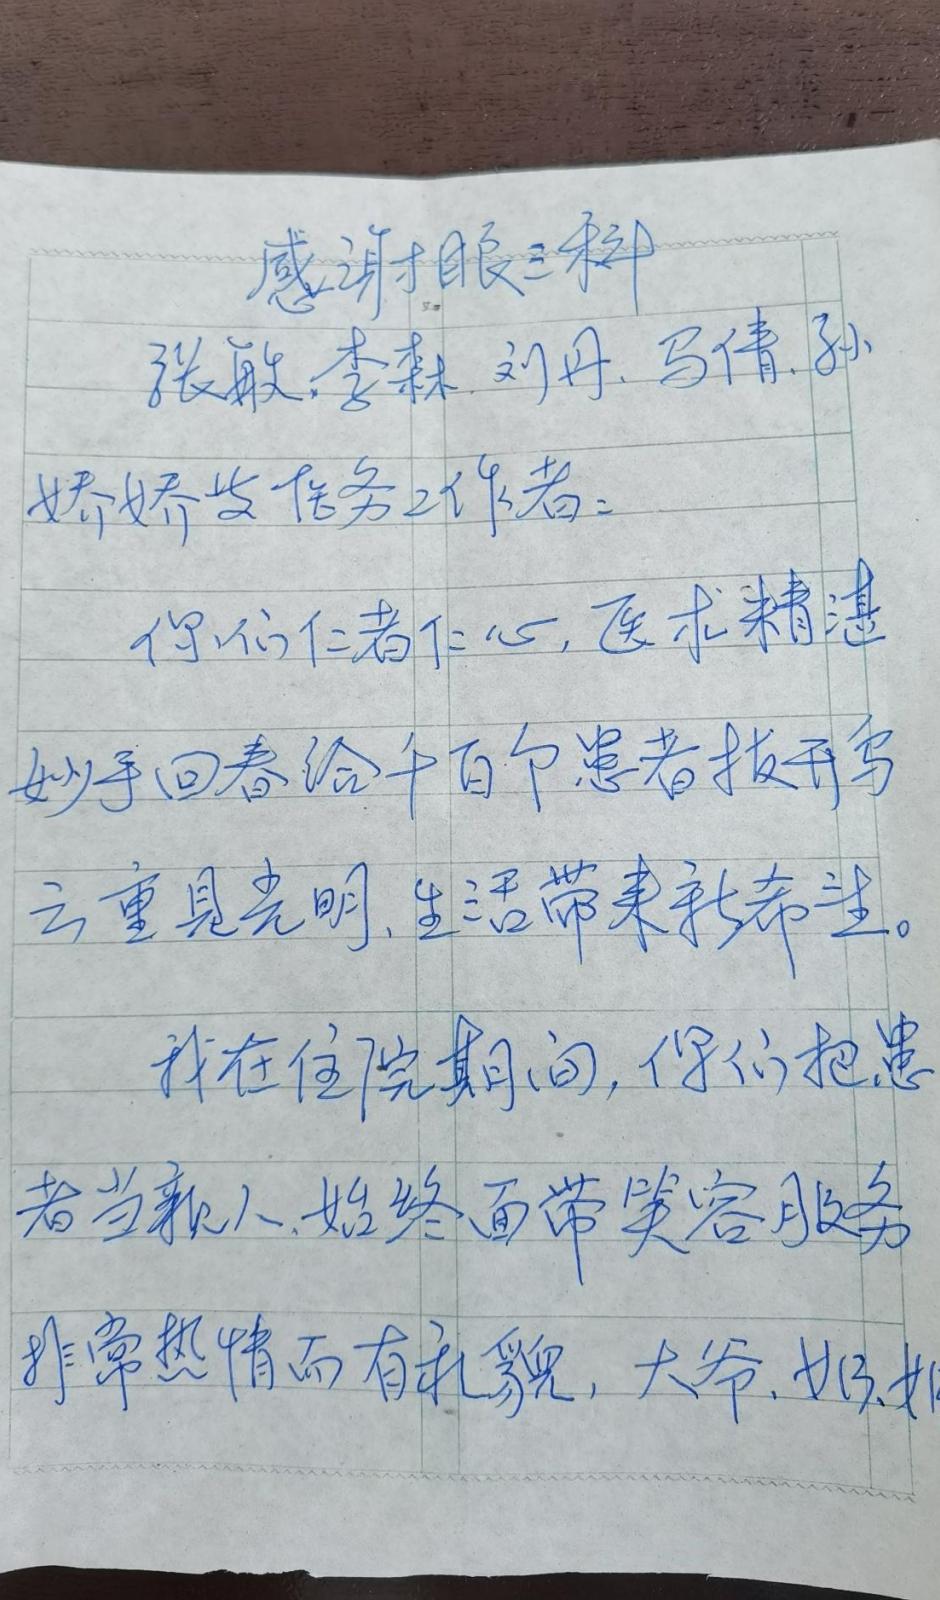 感谢眼三科
张敏、李森、刘丹、马倩、孙
娇娇及医务工作者：
你们仁者仁心，医术精湛
妙手回春给千百个患者拨开乌
云重见光明、生活带来新希望。
我在住院期间，你们把患
者当亲人、始终面带笑容服务
非常热情而有礼貌，大爷、奶奶